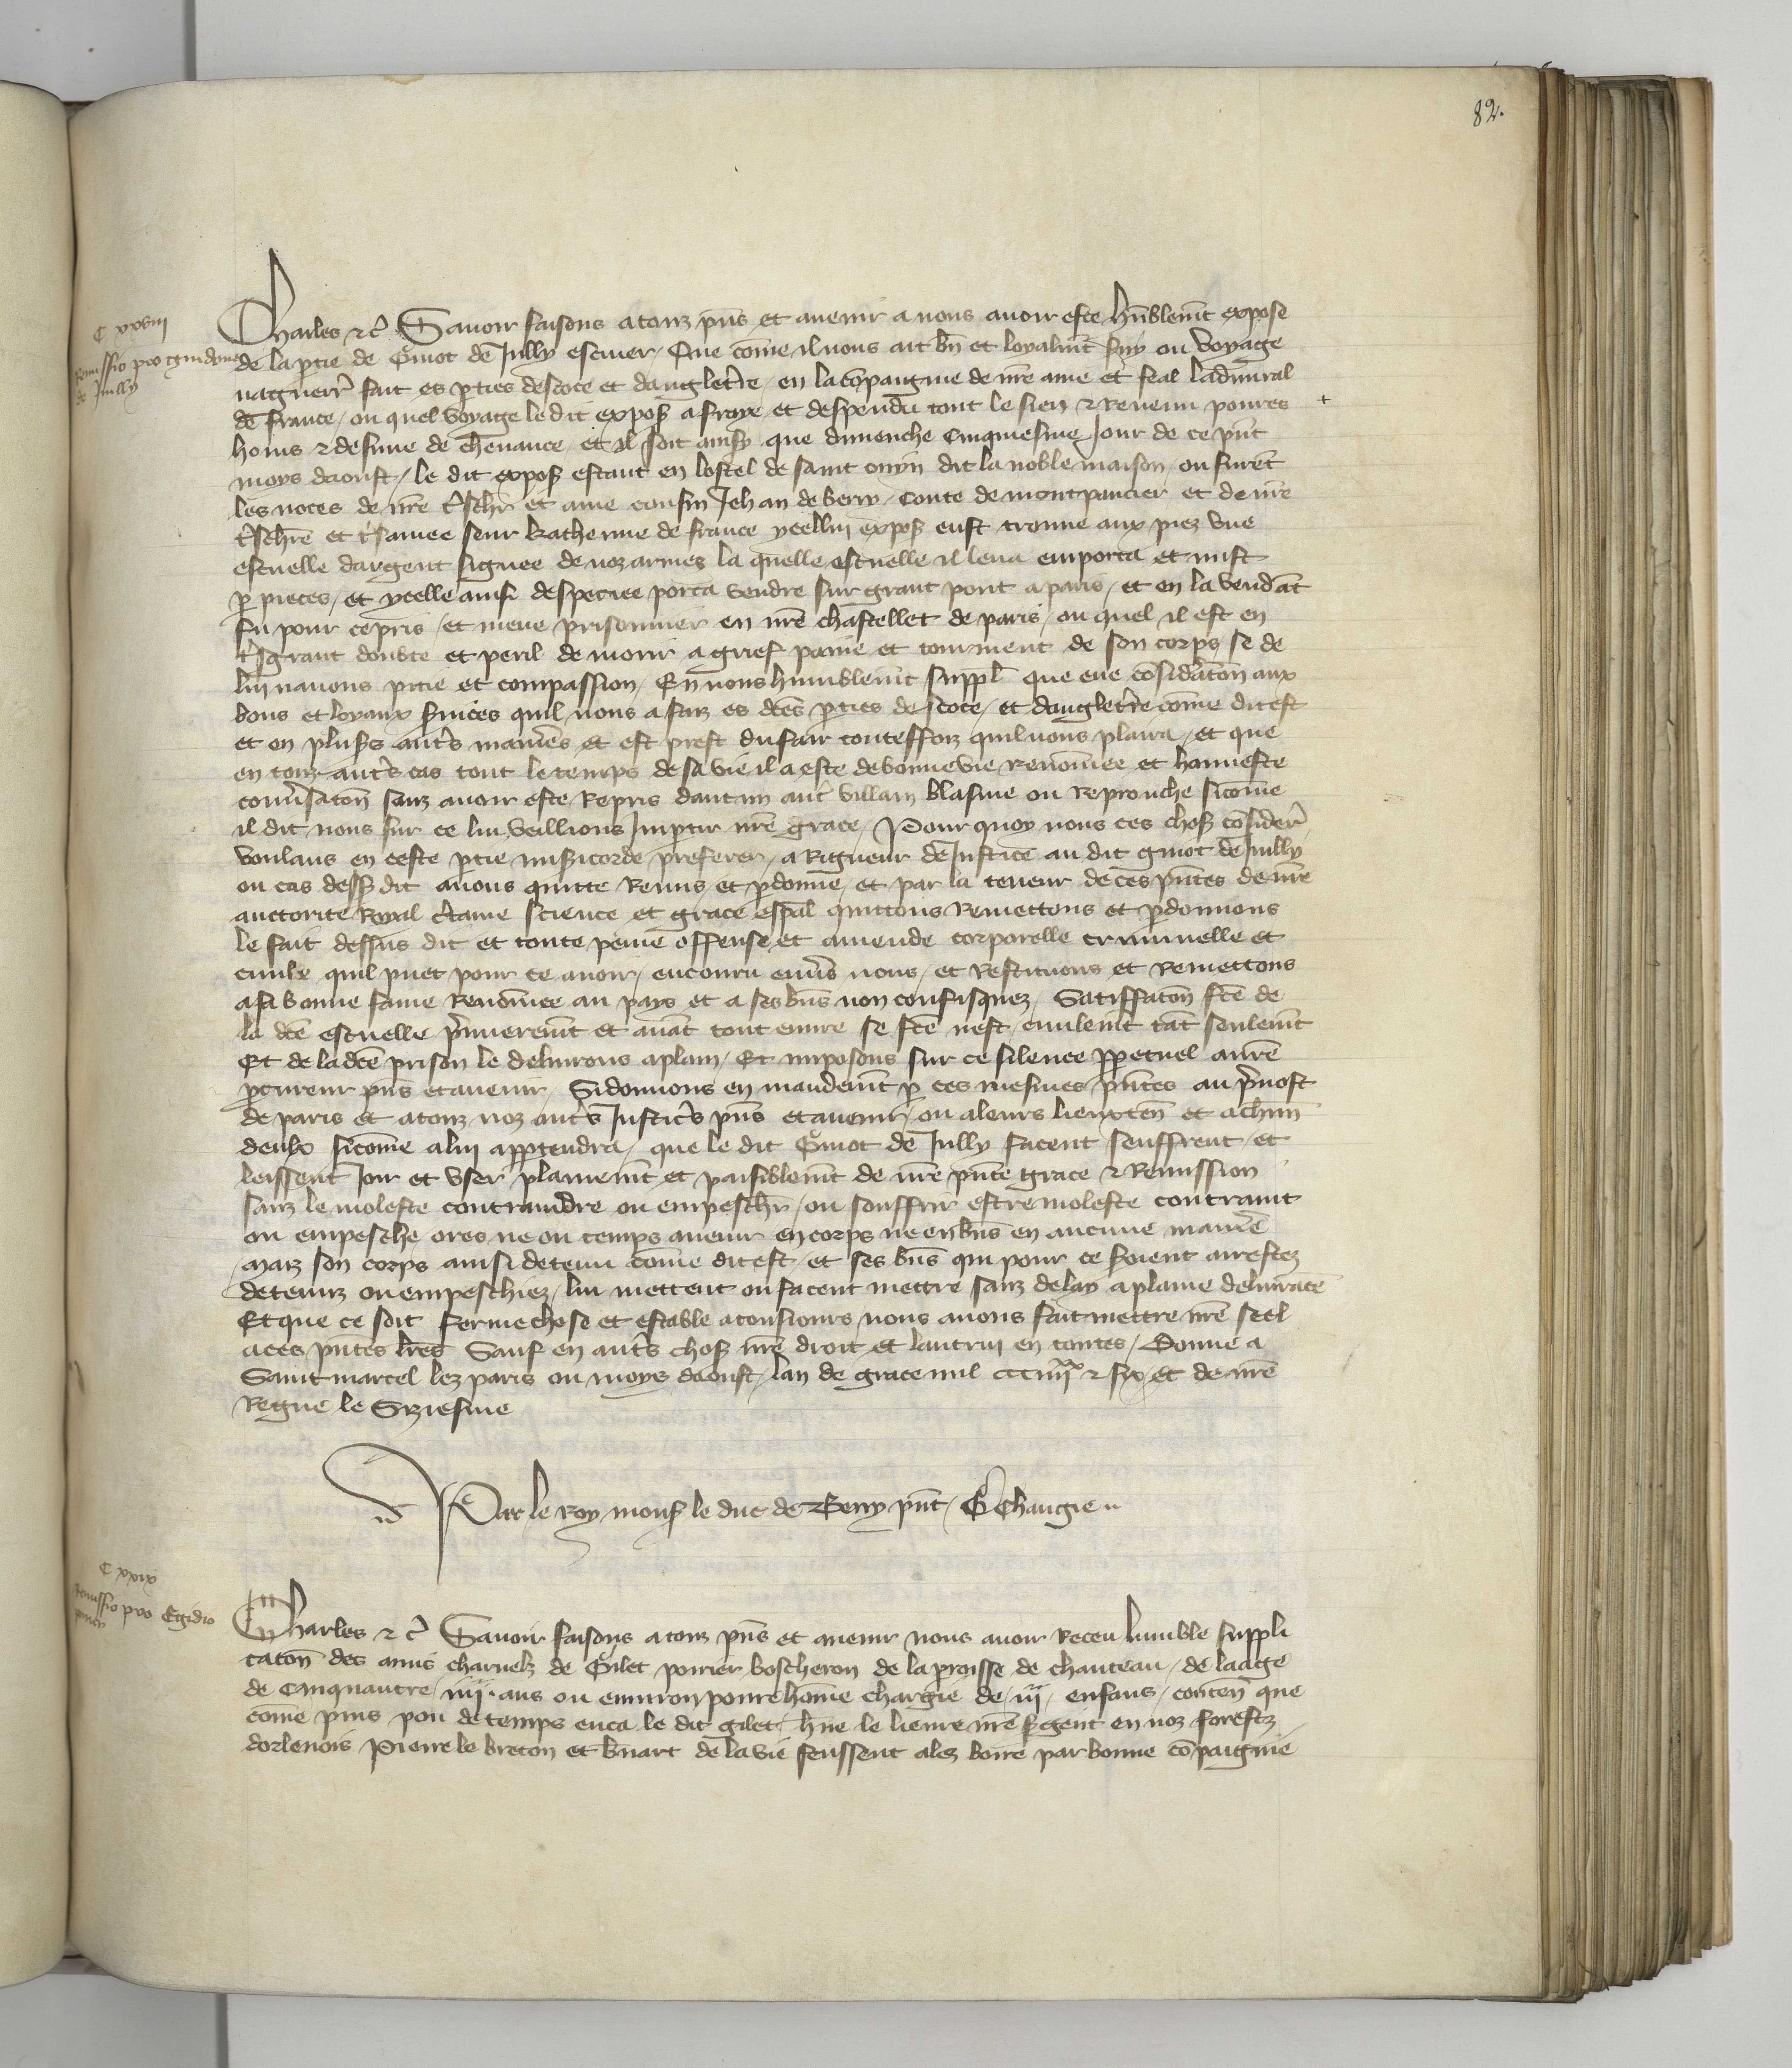 82.
C xxviii
Remissio pro guidone
de Juilly
Charles &c̃ Sauoir faisons a touz p̃ns et auenir a nous auoir este hũblem̃t expose
de la p̃tie de Guiot de Juilly escuier / Que cõme il nous ait bñ et loyalm̃t s̃uy ou voyage
naguerr̃ fait es p̃ties descoce et dangletr̃e / en la cõpaignie de nr̃e ame et feal ladmiral
de france / ou quel voyage le dit expos̃ a fraye et despendu tout le sien & Reuenu poures
homs & desnue de cheuance / et il soit ainsy que dimenche cinquiesme Jour de ce p̃nt
moys daoust / le dit expos̃ estant en lostel de saint ouyn dit la noble maison / ou furẽt
les noces de nr̃e tr̃schr̃ et ame cousin Jehan de berry / conte de montpancier et de nr̃e
tr̃schr̃e et tr̃samee seur katherine de france ycellui expos̃ eust trouue aux piez vne
escuelle dargent signee de noz armes la quelle escuelle il leua emporta et mist
p̃ pieces / et ycelle ainsi despeciee porta vendre sur grant pont a paris / et en la vendãt
fu pour ce pris / et mene prisonnier en nr̃e chastellet de paris / ou quel il est en
tr̃sgrant doubte et peril de morir a grief paine et tourment de son corps / se de
lui nauons pitie et compassion / En nous humblem̃t suppl̃ que eue cõsidr̃aton aux
bons et loyaux s̃uices quil nous a faiz es dc̃es p̃ties descoce / et dangletr̃e cõme dit est
et en plus̃s autr̃s manier̃es et est prest du fair toutesfoiz quil nous plaira / et que
en touz autr̃s cas tout le temps de sa vie il a este de bonne vie renõmee et honneste
conũsaton sanz auoir este Repris daucun autr̃ villain blasme ou reprouche sicõme
il dit nous sur ce lui veillions Imp̃tir nr̃e grace / Pour quoy nous ces chos̃ cõsider̃
voulans en ceste p̃tie mis̃icorde preferer / a Rigueur de Justice au dit guiot de Juilly
ou cas dess̃ dit auons quitte Remis et p̃donne / et par la teneur de ces p̃ntes de nr̃e
auctorite Royal c̃taine science et grace esp̃al quittons Remettons et p̃donnons
le fait dessus dit et toute peine offense et amende corporelle criminelle et
ciuile quil puet pour ce auoir / encouru enũs nous / et Restituons et Remettons
a sa bonne fame Renõmee au pays et a ses bñs non confisquez / Satiffaton fc̃e de
la dc̃e escuelle p̃mierem̃t et auãt tout euure se fc̃e nest / ciuilem̃t tãt seulem̃t
Et de la dc̃e prison le deliurons a plain / Et imposons sur ce silence pp̃etuel a nr̃e
p̃cureur p̃ns et auenir / Si donnons en mandem̃t p̃ ces mesmes p̃ntes au p̃uost
de paris et a touz noz autr̃s Justicr̃s p̃ns et auenir / ou a leurs lieuxteñ et a chũn
deulx sicõme a lui app̃tendra / que le dit Guiot de Juilly facent seuffrent / et
leissent Joir et vser plainem̃t et paisiblem̃t de nr̃e p̃nte grace & Remission
sanz le moleste contraindre ou empeschr̃ / ou souffrir estre moleste contraint
ou empesche / ores ne ou temps auenir en corps ne en bñs en aucune manier̃e
Maiz son corps ainsi detenu cõme dit est / et ses bñs qui pour ce s̃oient arrestez
detenuz ou empeschiez / lui mettent ou facent mettre sanz delay a plaine deliurãce
Et que ce soit ferme chose et estable a tousiours / nous auons fait mettre nr̃e seel
a ces p̃ntes lr̃es Sauf en autr̃s chos̃ nr̃e droit et lautrui en toutes / Donne a
Saint marcel lez paris ou moys daoust / lan de grace mil ccc iiii xx & six / Et de nr̃e
Regne le Siziesme
Par le Roy mons̃ le duc de Berry p̃nt / G Changie
C xxix
Remissio pro Egidio
Charles & c̃ Sauoir faisons a touz p̃ns et auenir nous auoir Receu lumble suppli
caton des amis charnelz de Gilet poirier boscheron de la p̃roisse de chanteau / de laage
de cinquante / iiii . ans ou enuiron poure hõme chargie de / iii / enfans / conteñ que
cõme puis pou de temps enca le dit gilet / hñe le lieure nr̃e s̃gent en noz forestz
dorlenois Pierre le breton et bñart de la vie feussent alez boire par bonne cõpaignie